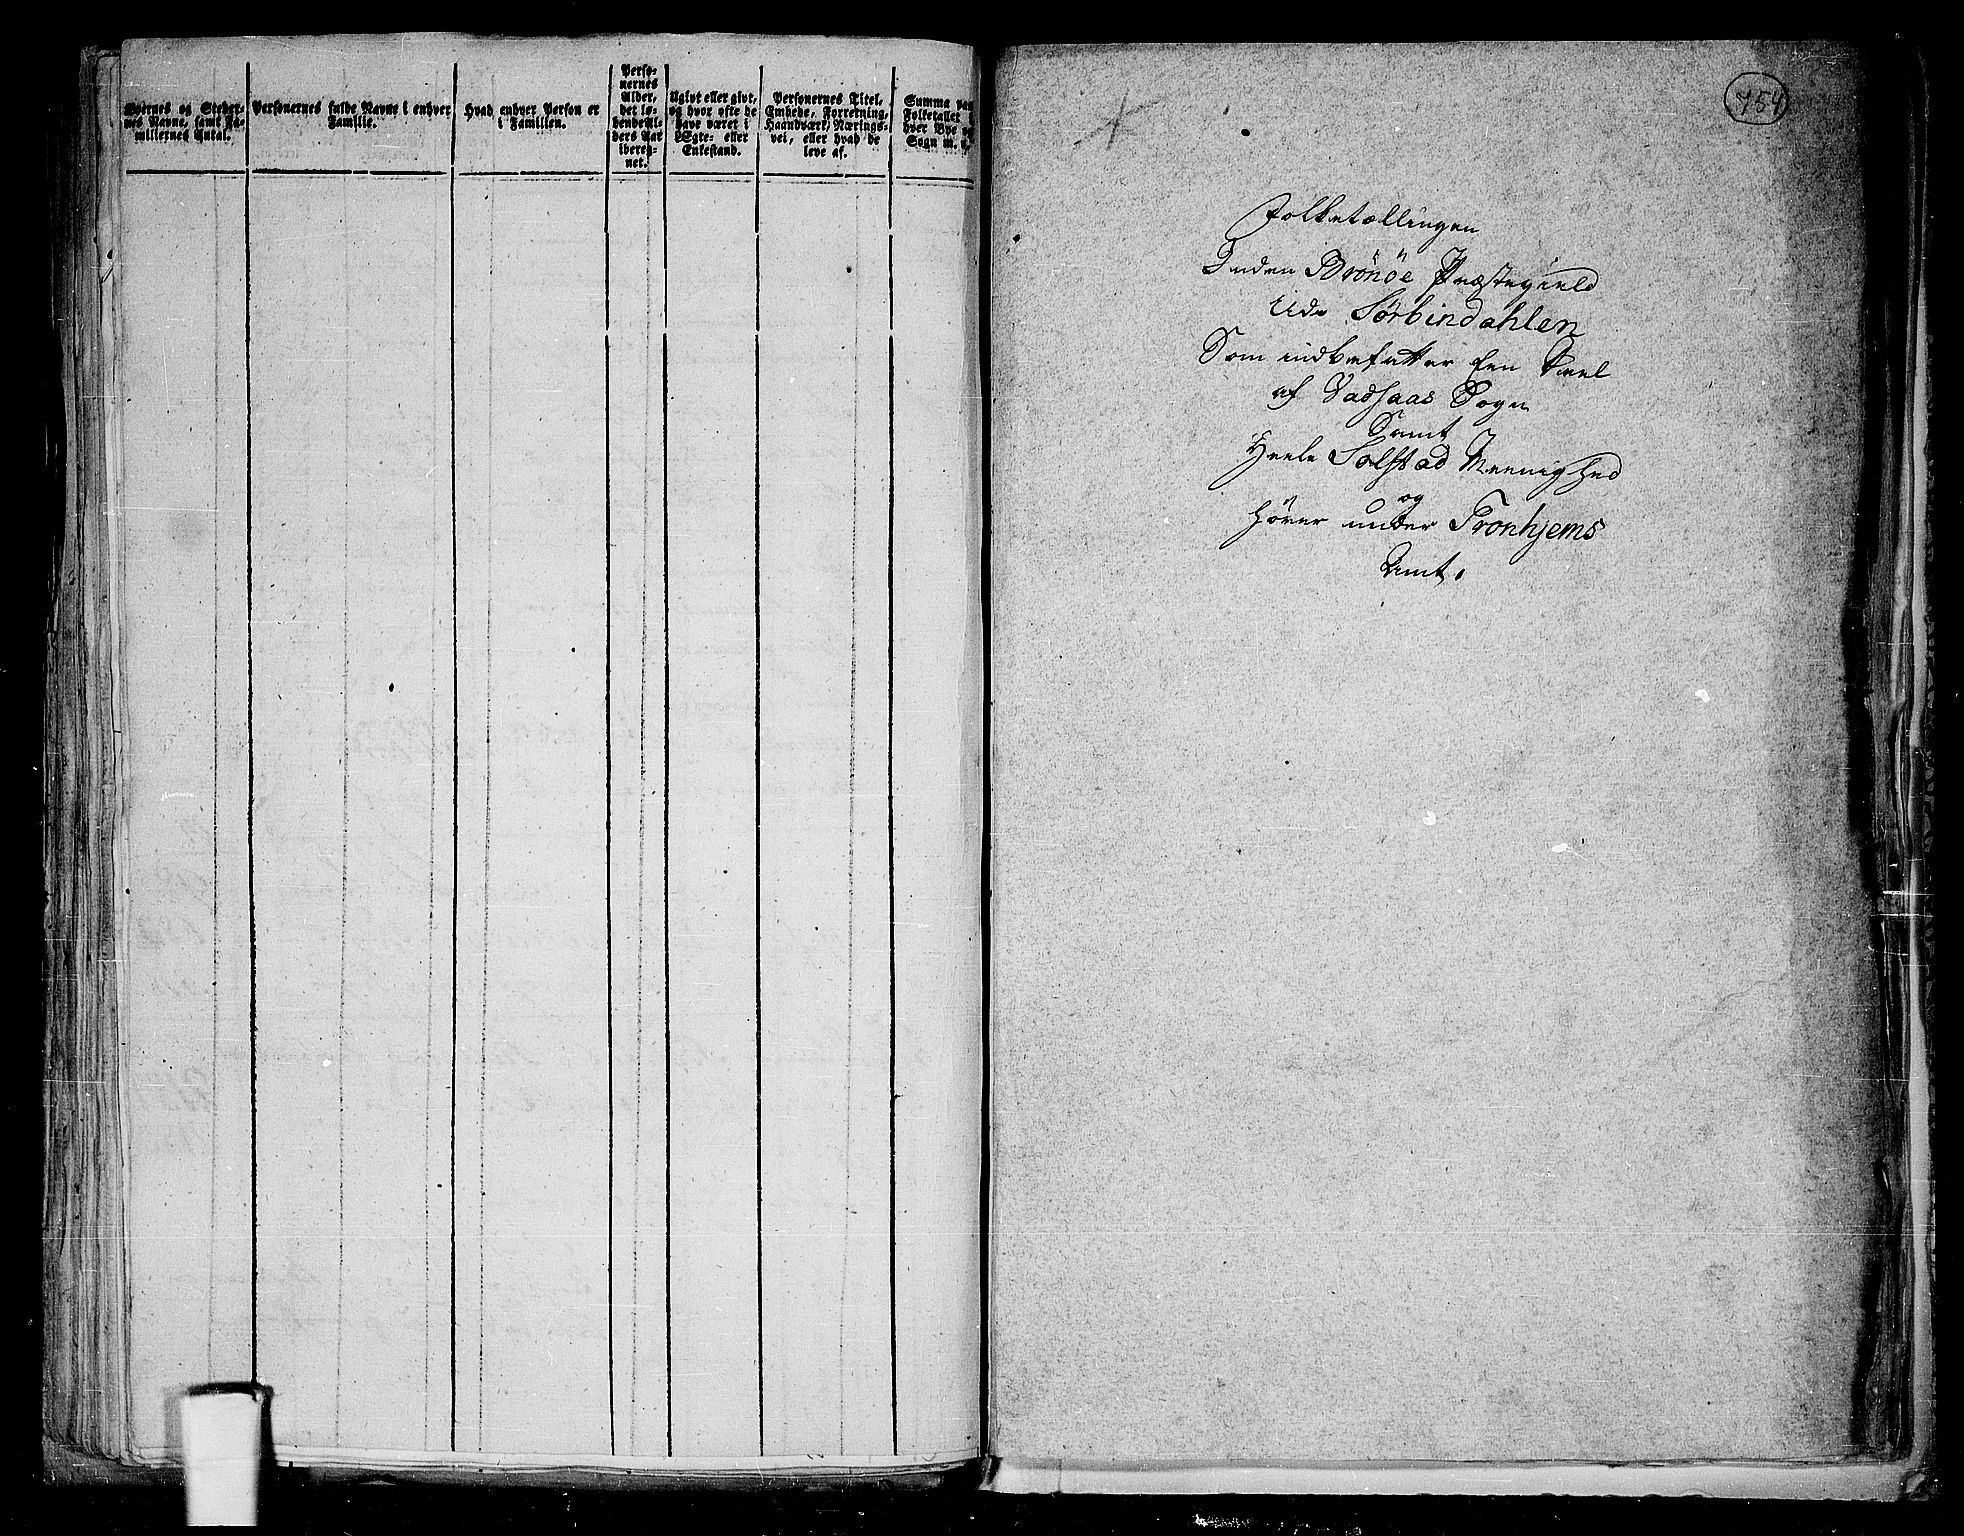 Byernes og Steder-
nes Navne, samt Fa-
miliernes Antal.
Personernes fulde Navne i enhver
Familie.
Hvad enhver Person er
i Familien.
Perso-
nernes
Alder,
det lø-
bende Al-
ders Aar
ibereg-
net.
Ugivt eller givt,
og hvor ofte de
have været i
Ægte- eller
Enkestand.
Personernes Titel,
Embede, Forretning,
Haandværk, Nærings-
vei, eller hvad de
leve af.
Summa paa
Folketallet
hver Bye
Sogn m. v.
754
Folketællingen
Inden Brönöe Præstegield
Udi Sørbindahlen
Som indbefatter Een Deel
af Vadsaas Sogn
Samt
Heele Solstad Meenighed
og
hörer under Tronhjems
Amt.